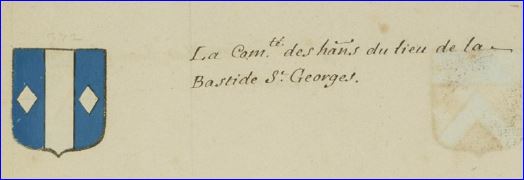 La Com.té des hãns du lieu de la
Bastide St. Georges.